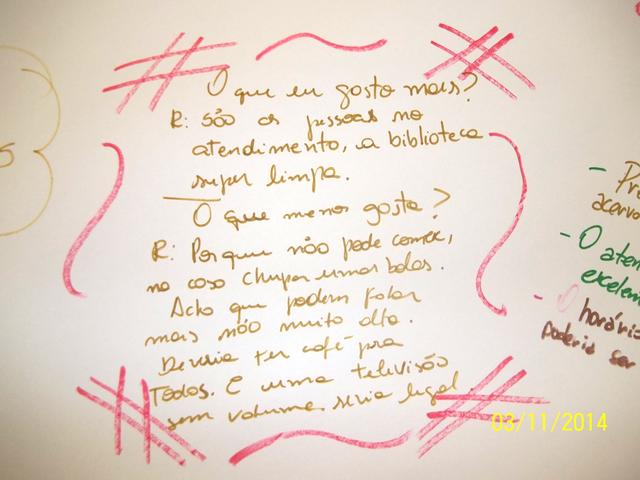 O que eu gosto mais?
R: são as pessoas no
atendimento, a biblioteca
super limpa.
O que menos gosta?
R: Porque não pode comer,
no caso chupar umas balas.
Acho que podem falar
mais não muito alto.
Deveria ter café pra
Todos. E uma televisão
sem volume seria legal
- 
acerv
- O aten
excelen
- O horári
poderia ser
03/11/2014